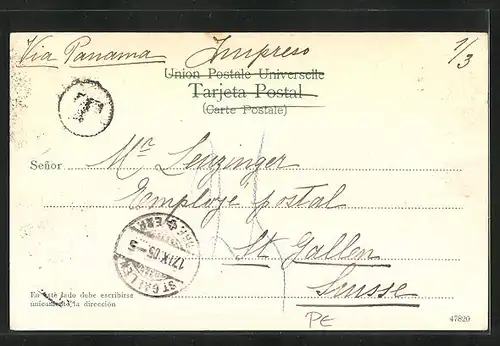 Via Panama Impreso 1/3
Union Postale Universelle
Tarjeta Postal
(Carte Postale)
T
Señor Mr Leuzinger
Employé postal
St Gallen
Suisse
ST. GALLEN
17.IX.05.-5
En este lado debe escribirse
únicamente la dirección
PE
47820